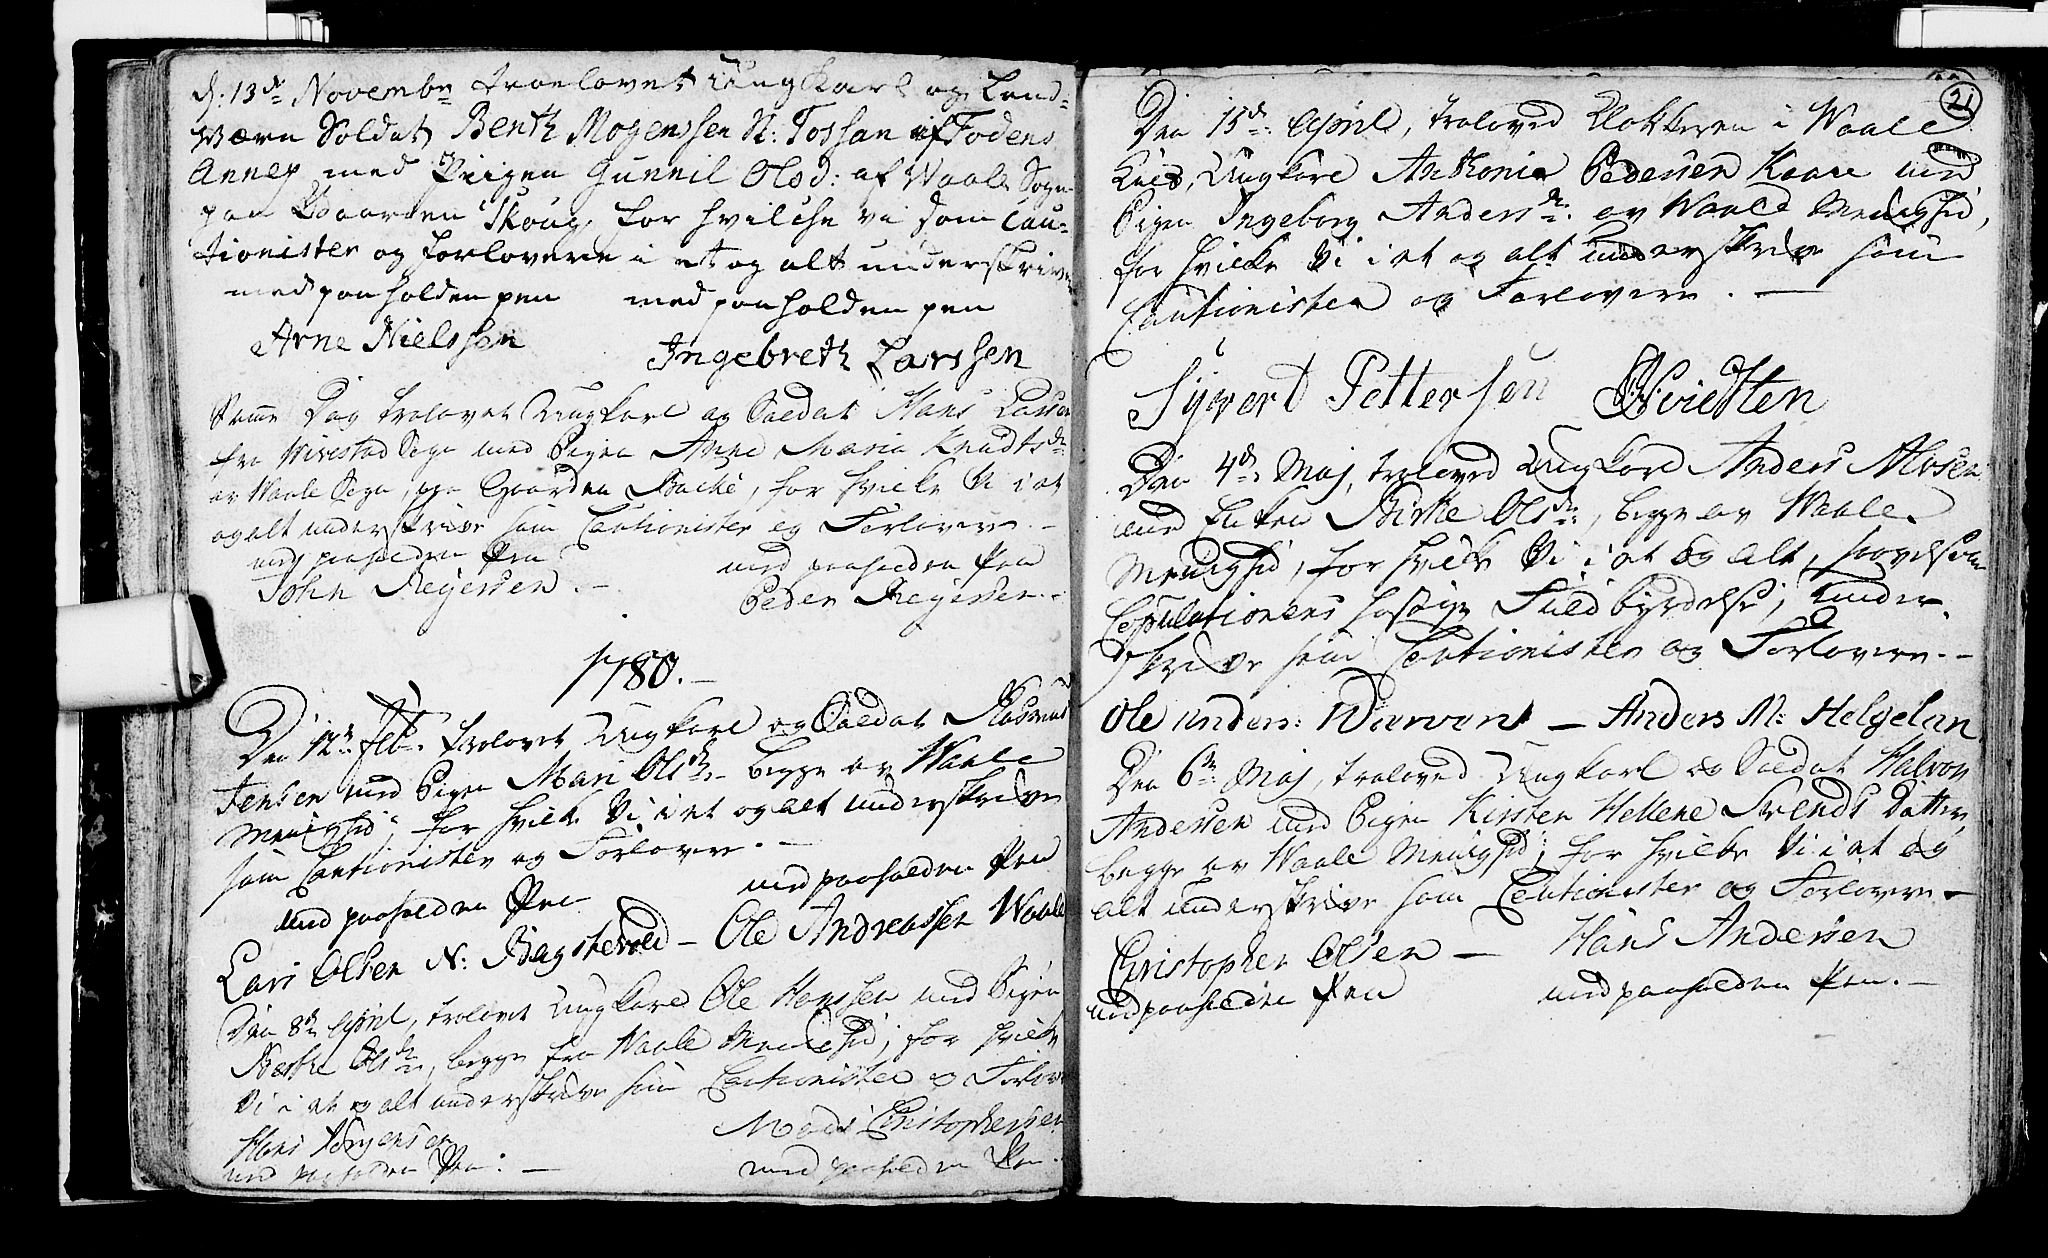 d: 13de Novembr troelovet Ungkarl og Land=
værn Soldat Benth Mogenssen N: Tossan af Fodens
Annex med Piigen Gunnil Olsd: af Waale Sogn
paa Gaarden Skoug, for hvilche vi som Cau=
tionister og forlovere i et og alt underskriver
med paaholden pen med paaholden pen
Arne Nielssen Ingebreth Larssen
Samme Dag trolovet Ungkarl og Soldat Hans Larsen
fra Sogn med Pigen Anne Maria Knudtsdr
av Waale Sogn, paa Gaarden Backe, for hvilke Vi i et
og alt underskrive som Cautionister og Forlovere
med paaholden Pen med paaholden Pen
John Reyersen. Peder Reyersen.
1780.
Den 12te Feb. trolovet Ungkarl og Soldat Rasmus
Jensen med Pigen Mari Olsdr begge av Waale
Menighed, for hvilke Vi i et og alt underskrive
som Cautionister og Forlovere.
med paaholden Pen med paaholden Pen
Lars Olsen N: - Ole Andreassen Waale
Den 8de April, trolovet Ungkarl Ole Hanssen med Pigen
Olsdr, begge fra Waale Menighed; for hvilke
Vi i et og alt underskrive som Cautionister og Forlover
Hans Jørgensen Mads Christophersen
med paaholden Pen. med paaholden Pen.
21
Den 15de April, troloved Klokkeren i Waale
Ungkarl Anthonie Pedersen Kaare med
Pigen Ingeborg Andersdr: av Waale Menighed,
for hvilke Vi i et og alt underskrive som
Cautionister og Forlovere.
Syvert Pettersen Hvidsten
Den 4de Maj, troloved Ungkarl Anders Alvsen
med Enken Birthe Olsdr, begge av Waale
Menighed, for hvilke Vi i et og alt, saavelsom
Copulationens hastige Fuldbyrdelse, under-
skrive som Cautionister og Forlovere.
Ole Anders: - Anders M: Helgelan
Den 6te Maj, troloved Ungkarl og Soldat Halvor
Andersen med Pigen Kirsten Hellene Svends Datter,
begge av Waale Menighed, for hvilke Vi i et og
alt underskrive som Cautionister og Forlovere
Christopher Olsen - Hans Andersen
med paaholden Pen med paaholden Pen.